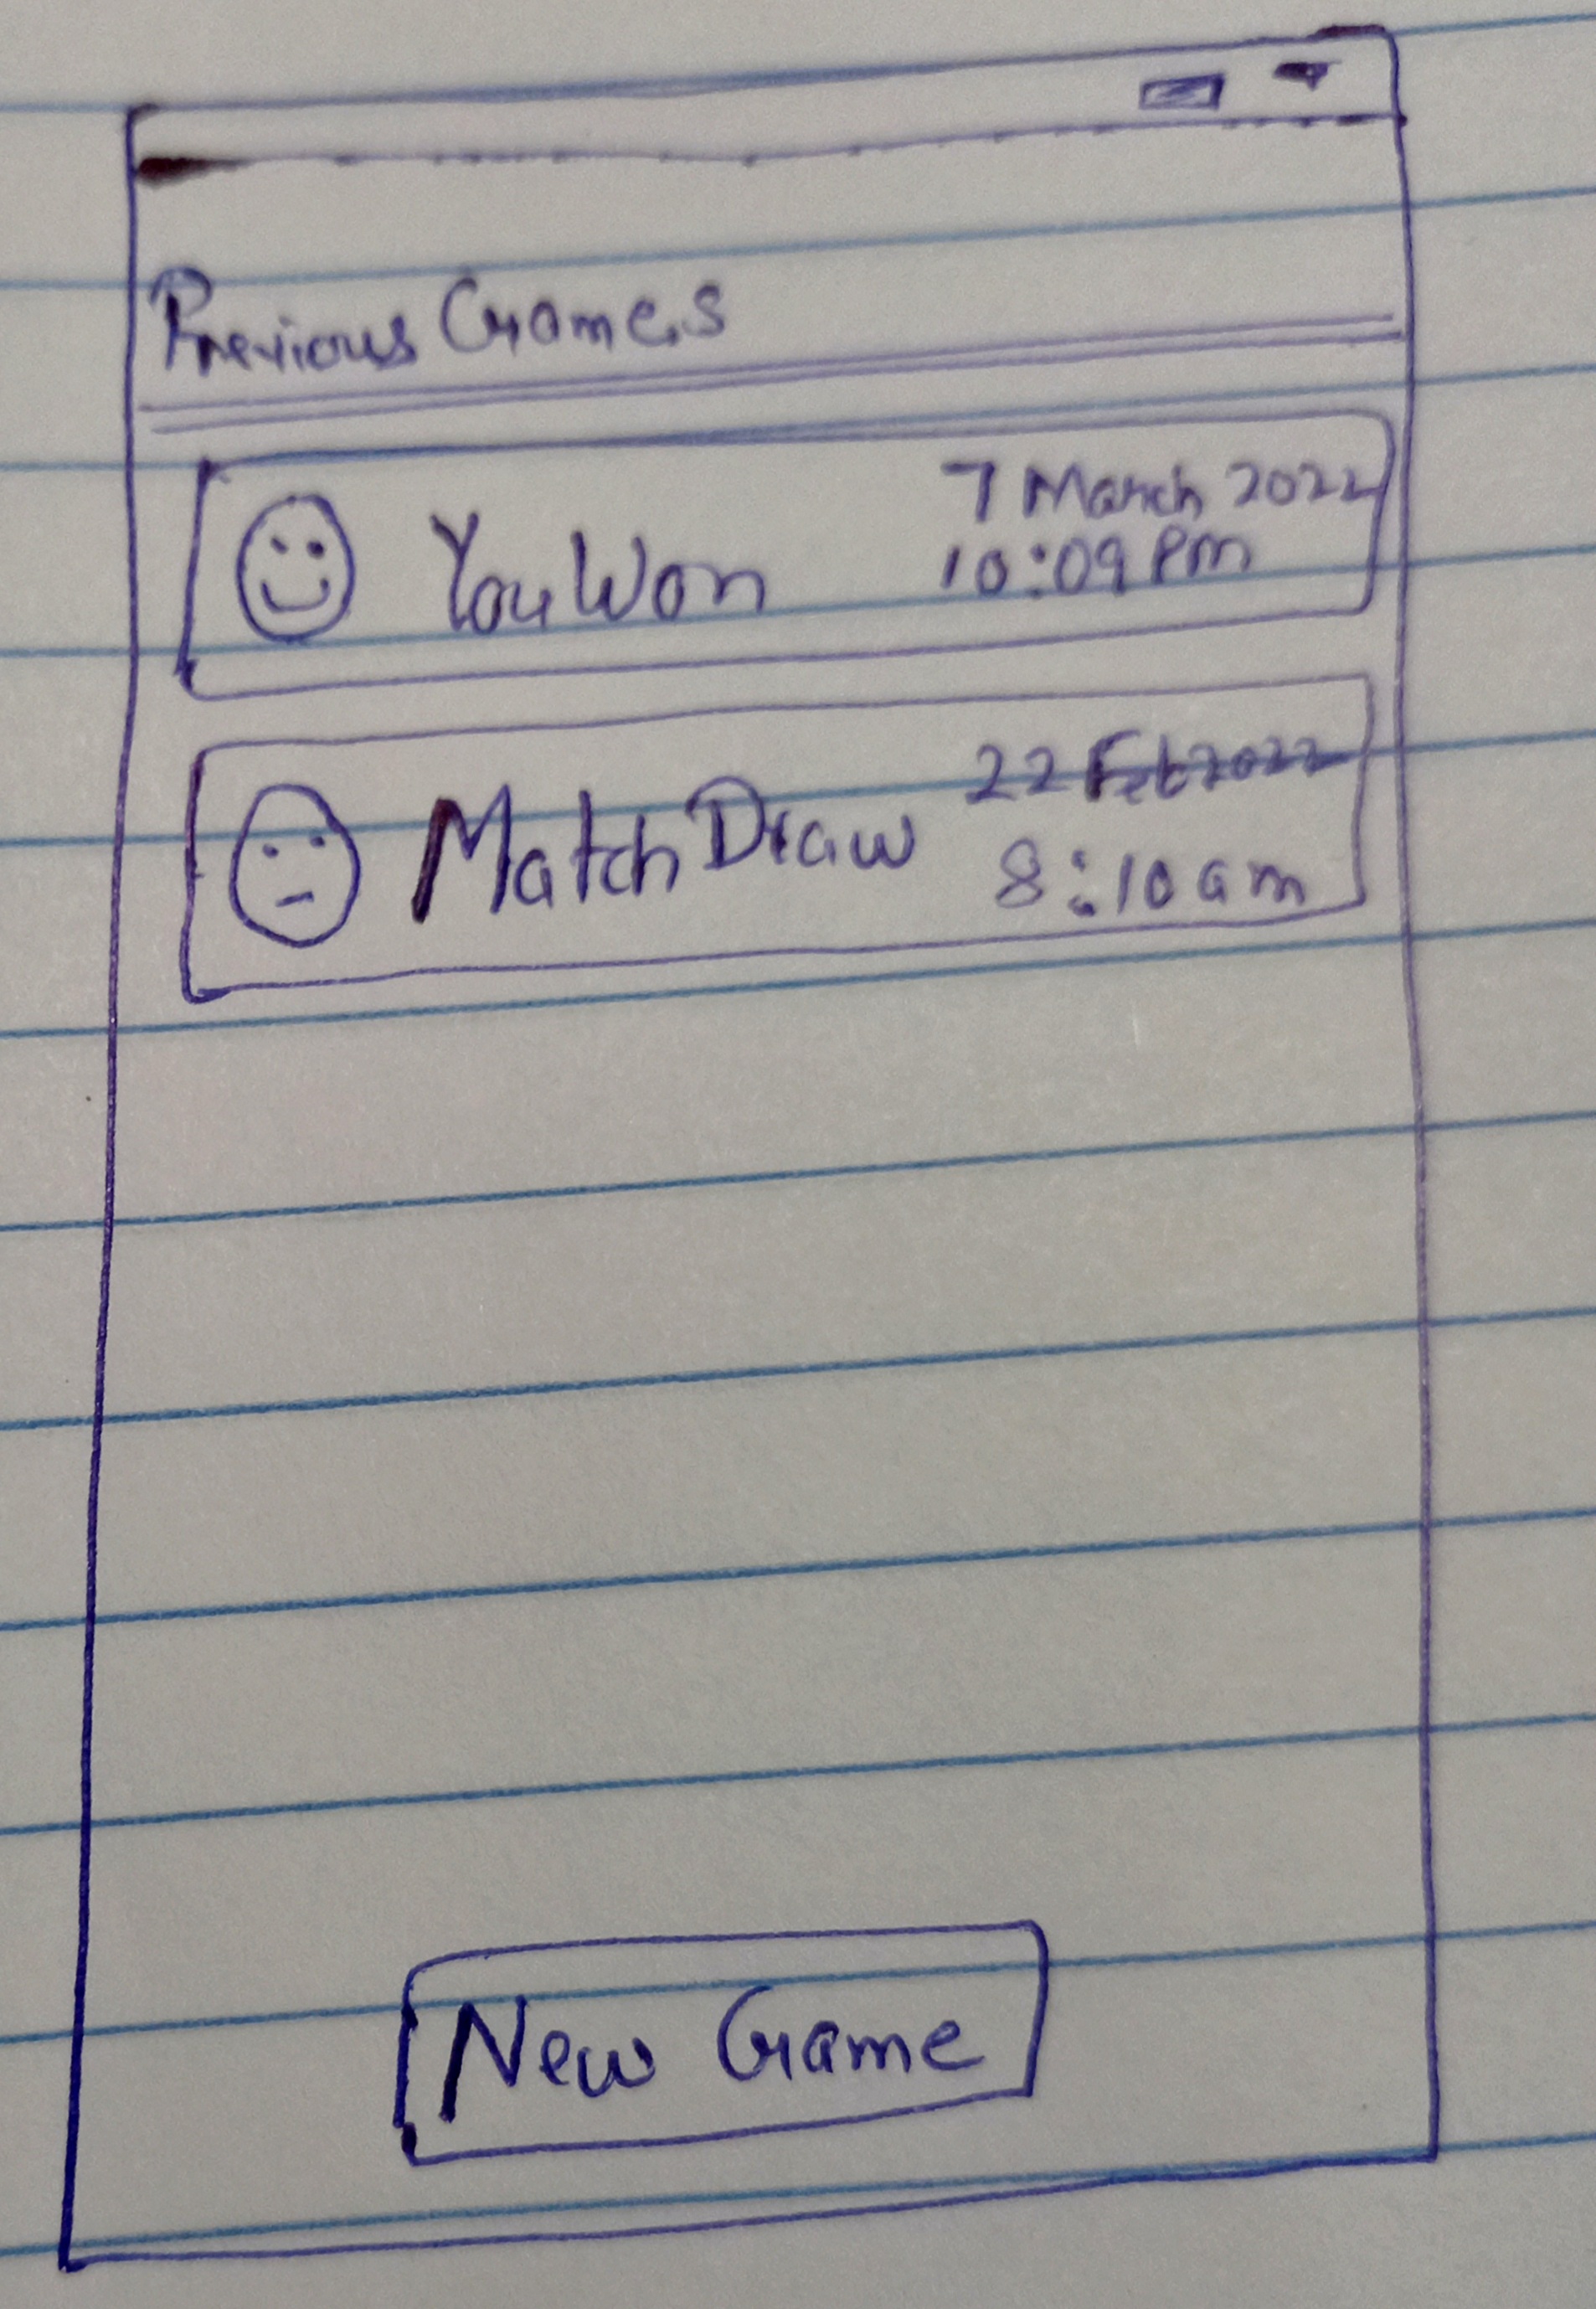 Previous Games
You Won
7 March 2022
10:09 PM
Match Draw
22 Feb 2022
8:10 am
New Game